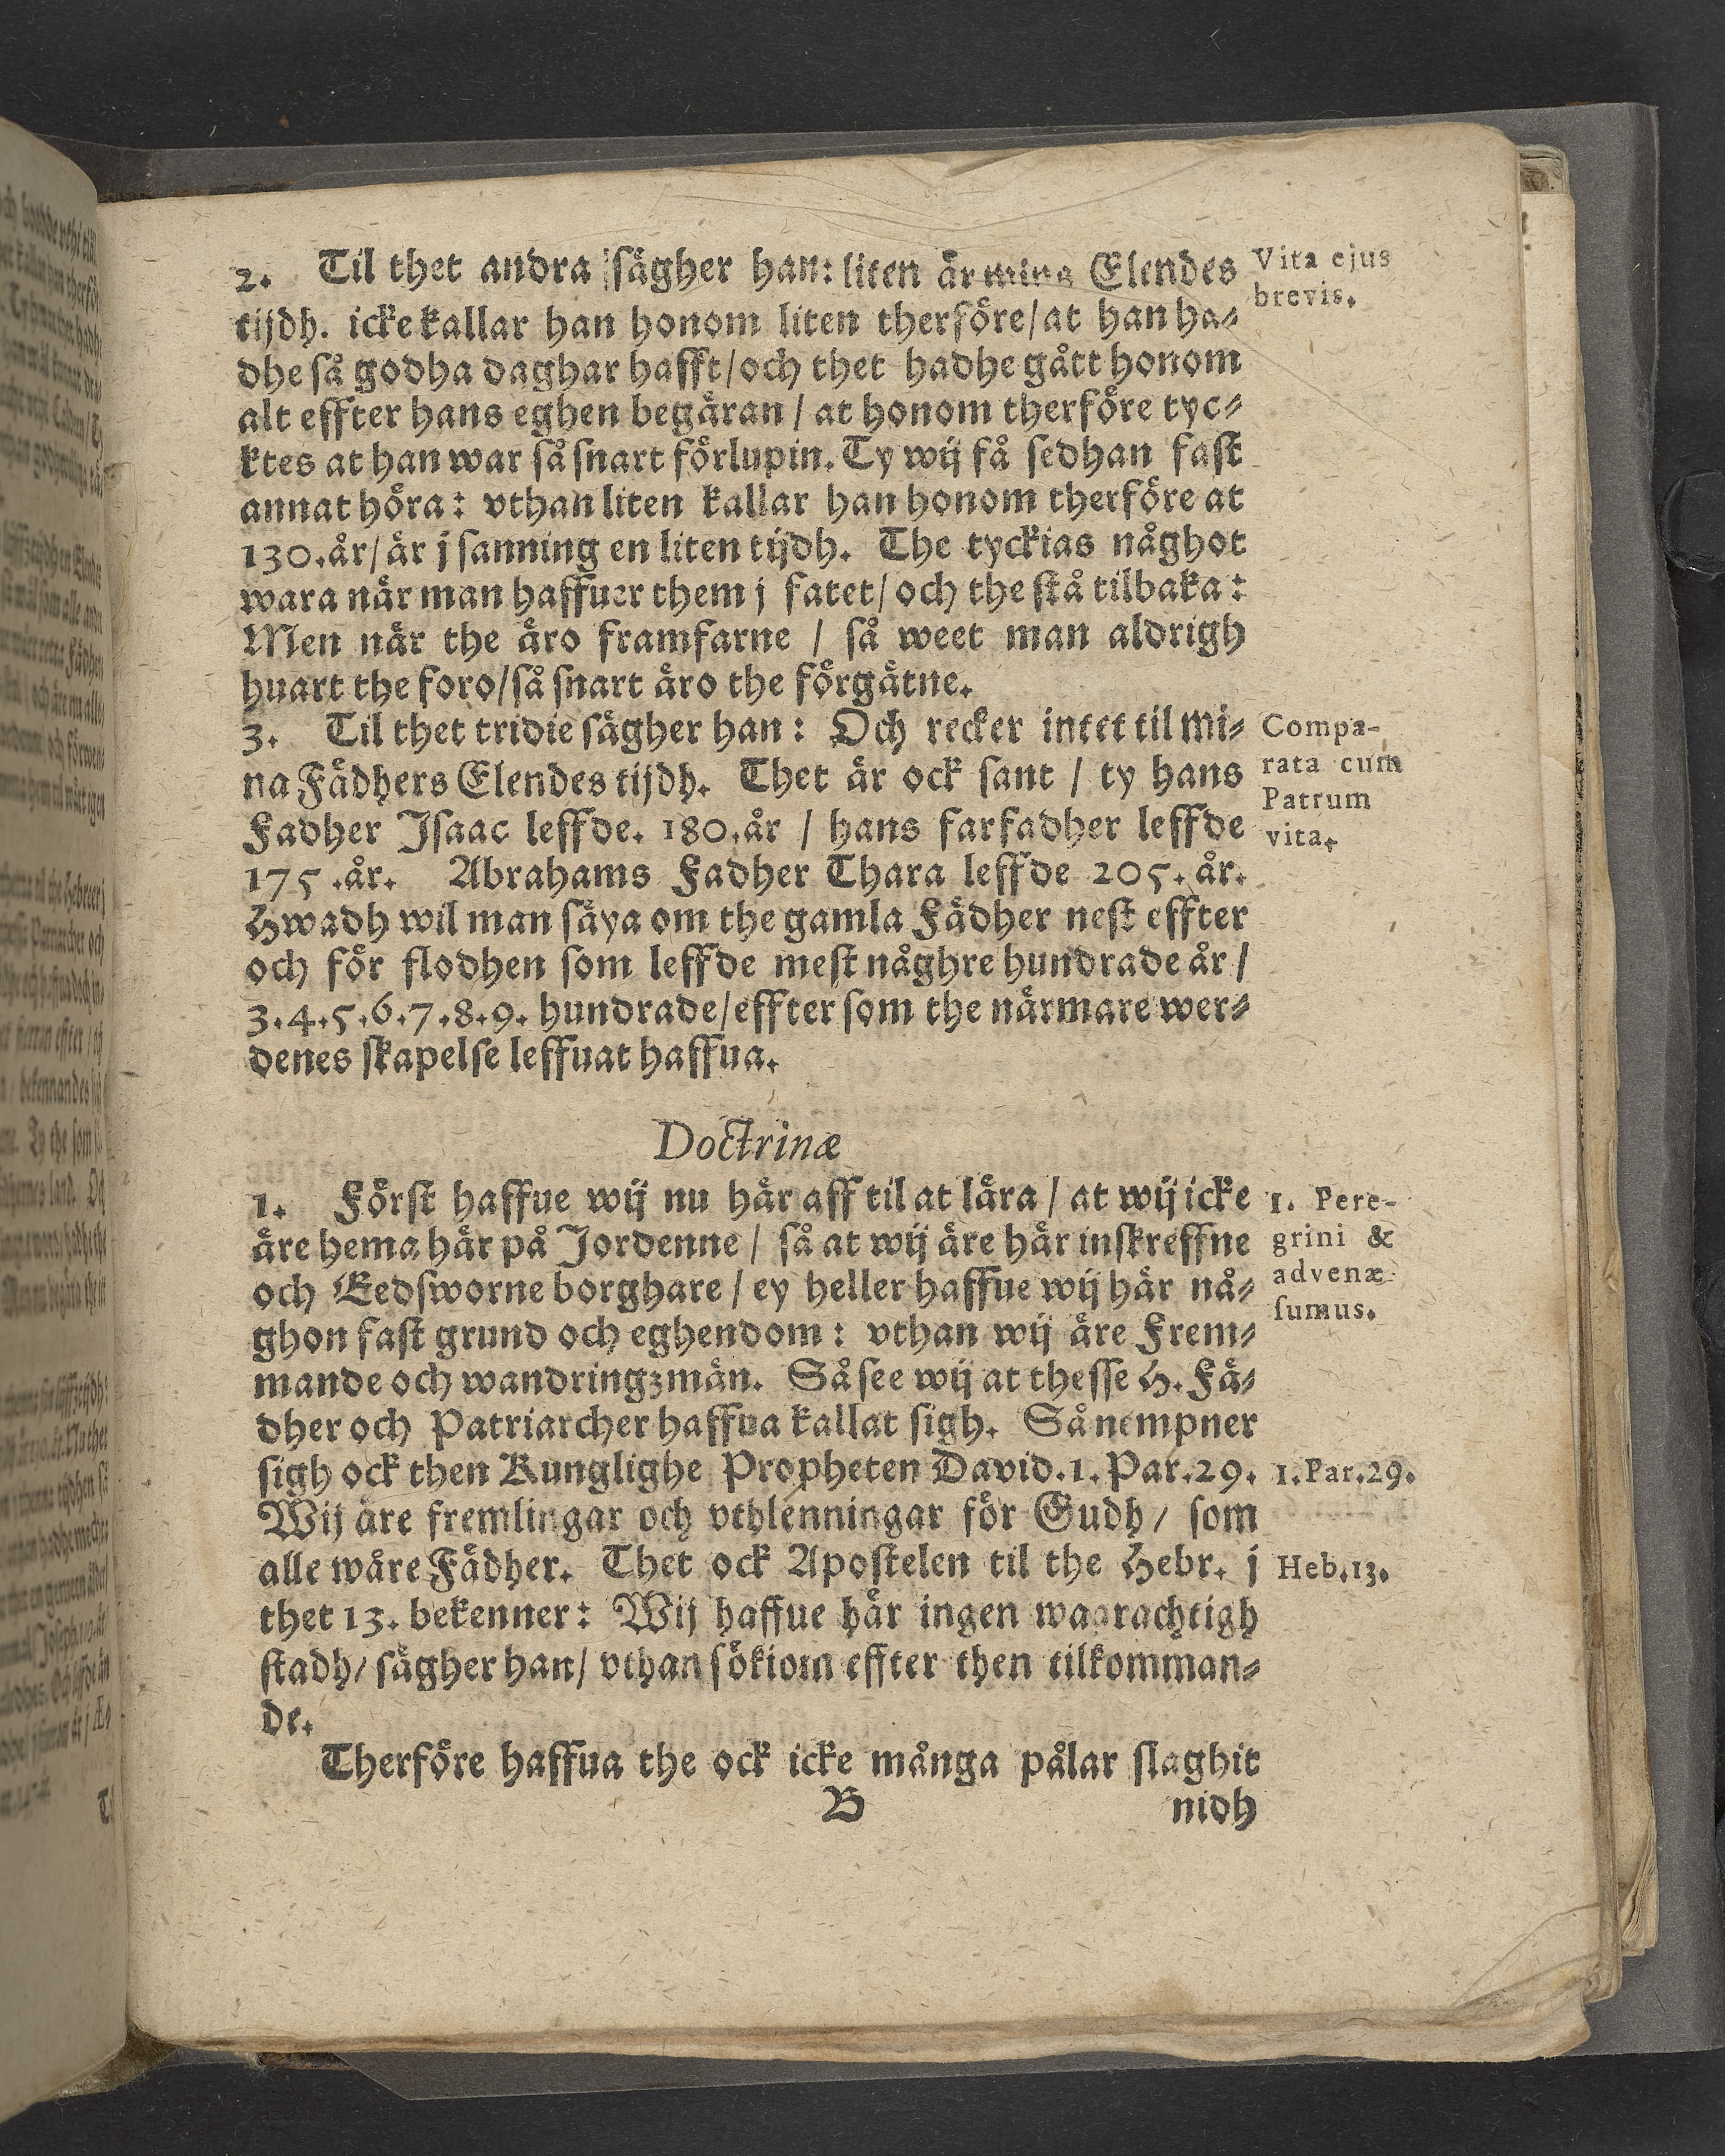 2. Til thet andra sägher han: liten är mina Elendes
tijdh. icke kallar han honom liten therföre/at han ha-
dhe så godha daghar hafft/och thet hadhe gått honom
alt effter hans eghen begäran / at honom therföre tyc-
ktes at han war så snart förlupin. Ty wij få sedhan fast
annat höra: vthan liten kallar han honom therföre at
130.år/är j sanning en liten tijdh. The tyckias någhot
wara när man haffuer them j fatet/ och the stå tilbaka:
Men när the äro framfarne / så weet man aldrigh
huart the foro/så snart äro the förgätne.
3. Til thet tridie sägher han: Och recker intet til mi-
na Fädhers Elendes tijdh. Thet är ock sant / ty hans
Fadher Isaac leffde. 180.år / hans farfadher leffde
175.år. Abrahams Fadher Thara leffde 205. år.
Hwadh wil man säya om the gamla Fädher nest effter
och för flodhen som leffde mest någhre hundrade år /
3.4.5.6.7.8.9. hundrade/effter som the närmare wer-
denes skapelse leffuat haffua.
Doctrinæ
1. Först haffue wij nu här aff til at lära / at wij icke
äre hema här på Jordenne / så at wij äre här inskreffne
och Eedsworne borghare / ey heller haffue wij här nå-
ghon fast grund och eghendom: vthan wij äre Frem-
mande och wandringzmän. Så see wij at thesse H. Fä-
dher och Patriarcher haffua kallat sigh. Så nempner
sigh ock then Kunglighe Propheten David.1.Par.29.
Wij äre fremlingar och vthlenningar för Gudh/ som
alle wåre Fädher. Thet ock Apostelen til the Hebr. j
thet 13. bekenner: Wij haffue här ingen waarachtigh
stadh/ sägher han/ vthan sökiom effter then tilkomman-
de.
Therföre haffua the ock icke många pålar slaghit
B nidh
Vita ejus
brevis.
Compa-
rata cum
Patrum
vita.
1. Pere-
grini &
advenæ
sumus.
1.Par.29.
Heb.13.